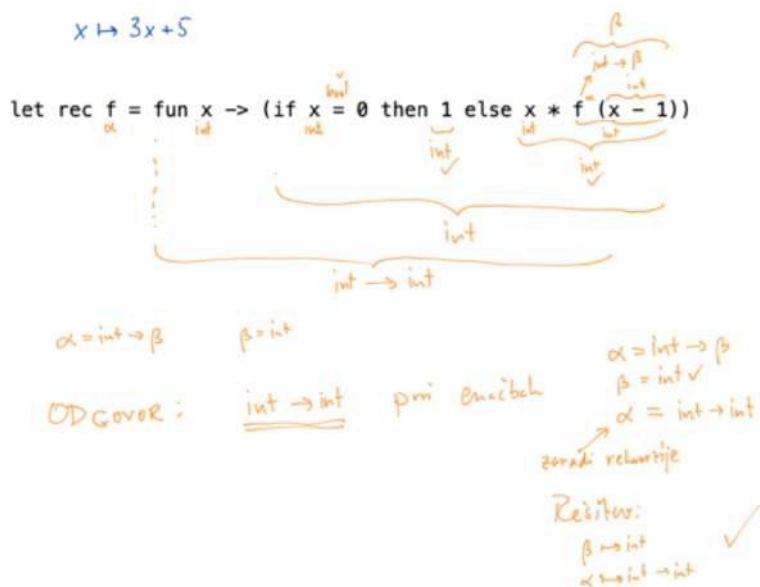 x ↦ 3x+5
β
int → β
bool int
let rec f = fun x -> (if x = 0 then 1 else x * f (x - 1))
α int int int int
int int
✓ ✓
int
int → int
α = int → β β = int
ODGOVOR: int → int pri enačbah
α = int → β
β = int ✓
α = int → int
zaradi rekurzije
Rešitev:
β ↦ int ✓
α ↦ int → int